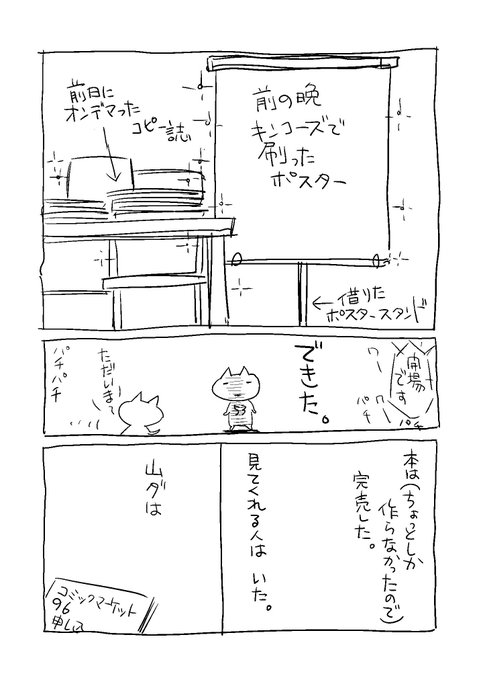 前の晩
キンコーズで
刷った
ポスター
前日に
オンデマった
コピー誌
←借りた
ポスタースタンド
開場
です
ワー
ワー
パチ
パチ
できた。
53
ただいま〜
パチパチ
本は(ちょっとしか
作らなかったので)
完売した。
見てくれる人は いた。
山ダは
コミックマーケット
96
申し込